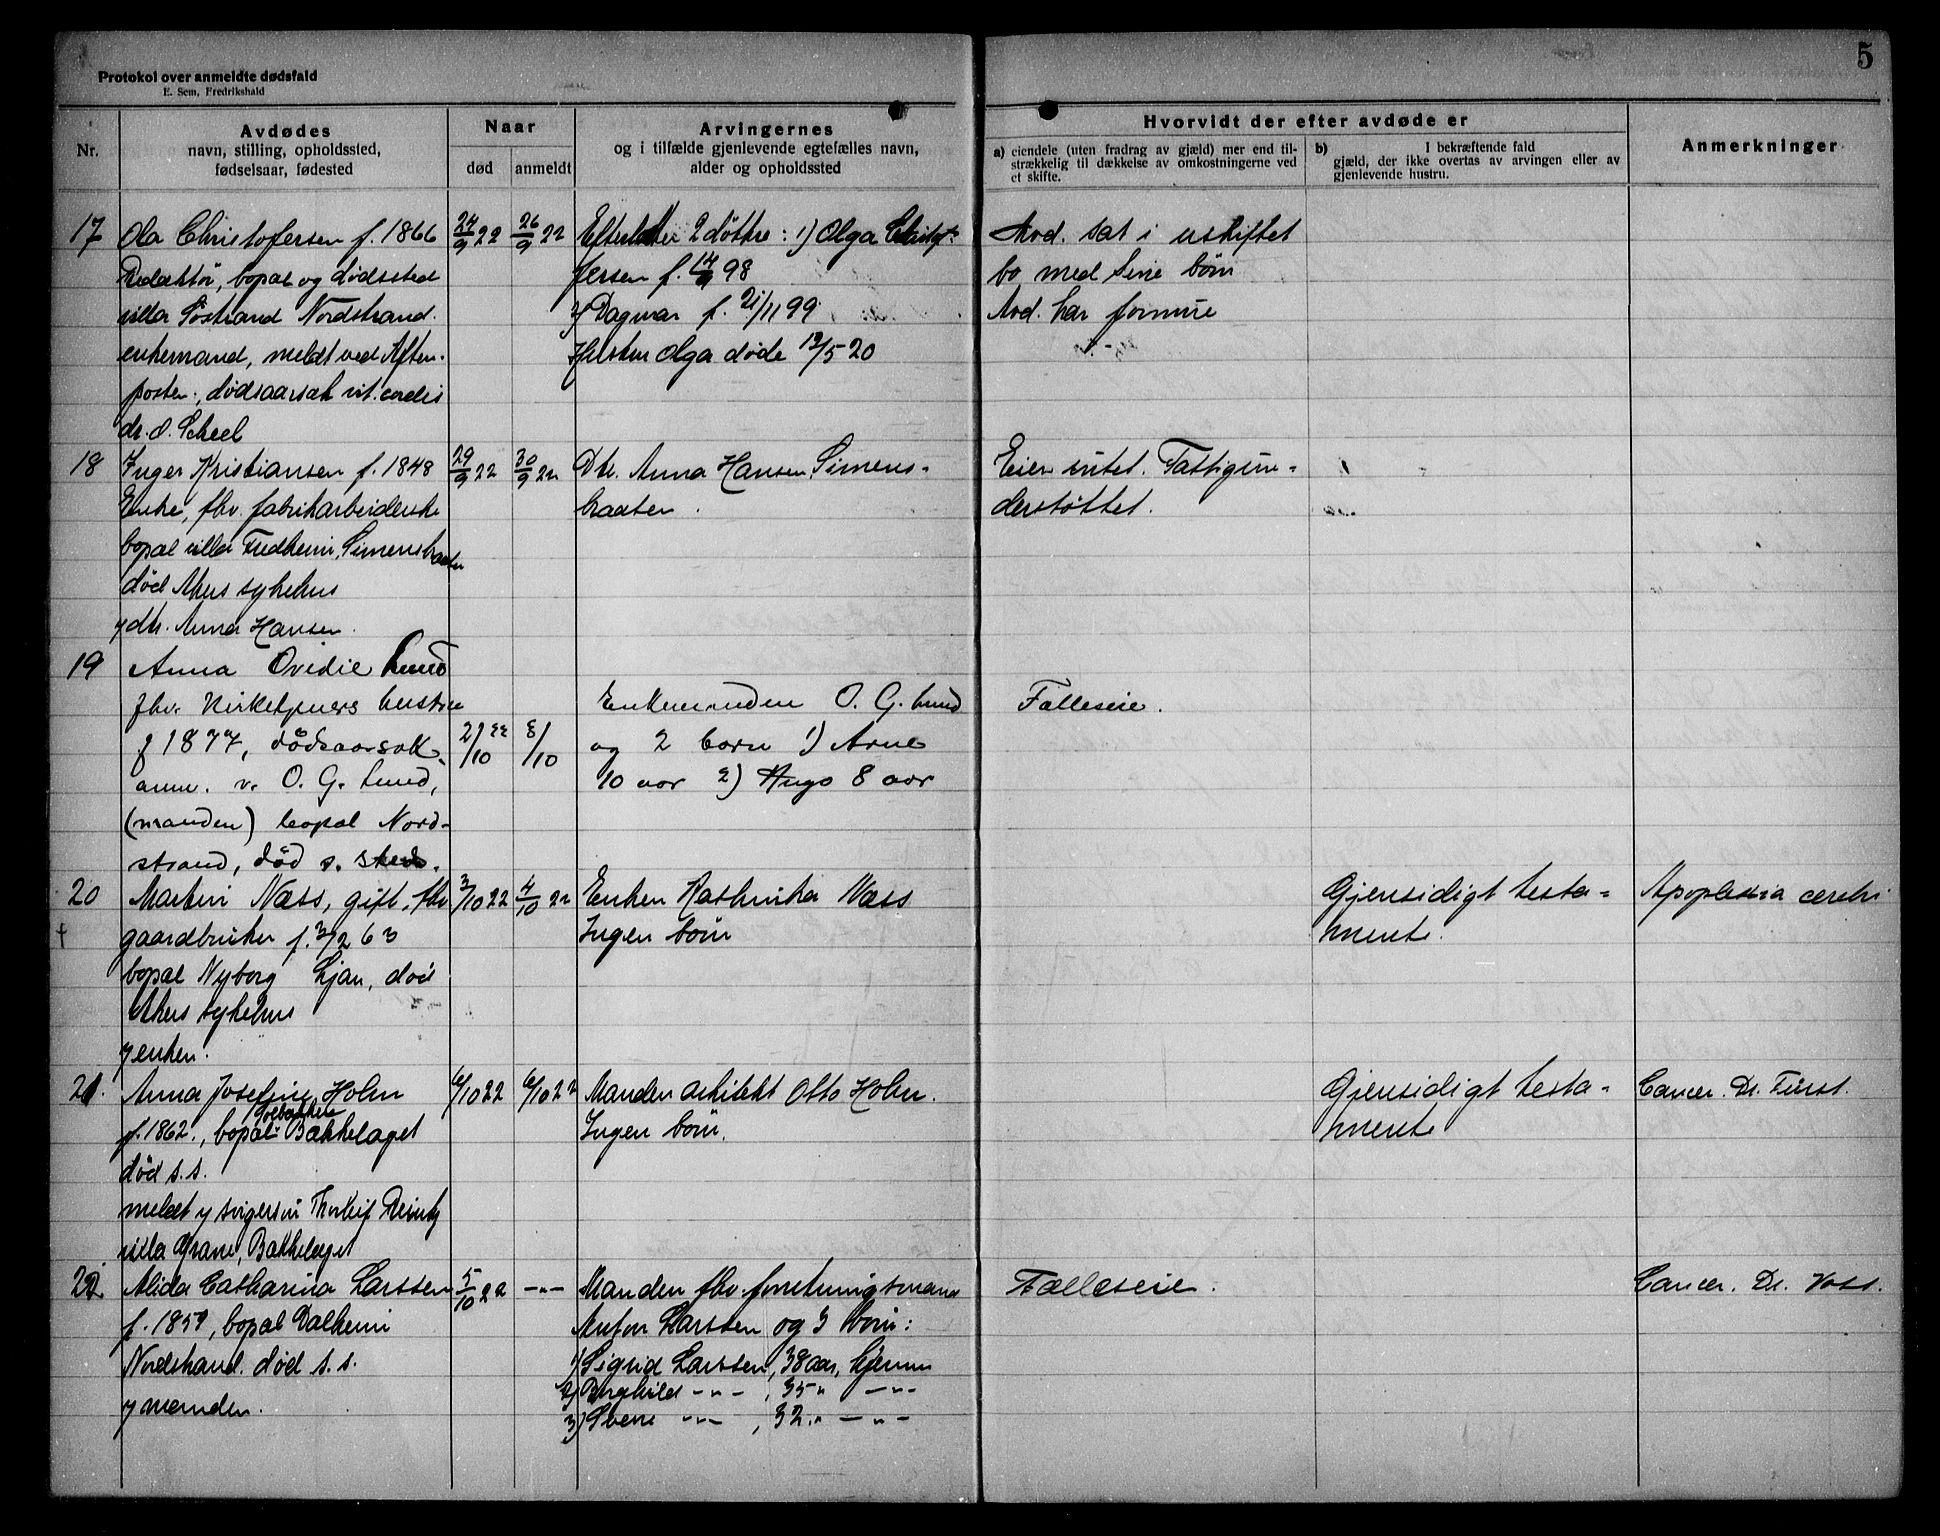 5
Protokol over anmeldte dødsfald
E. Sem, Fredrikshald
Nr.
Avdødes
navn, stilling, opholdssted,
fødselsaar, fødested
Naar
død
anmeldt
Arvingernes
og i tilfælde gjenlevende egtefælles navn,
alder og opholdssted
Hvorvidt der efter avdøde er
a) eiendele (uten fradrag av gjæld) mer end til-
strækkelig til dækkelse av omkostningerne ved
et skifte.
b) I bekræftende fald
gjæld, der ikke overtas av arvingen eller av
gjenlevende hustru.
Anmerkninger
17
Ola Christofersen f. 1866
Redaktør, bopæl og dødssted
villa Søstrand Nordstrand.
enkemand, meldt ved Aften-
posten, dødsaarsak vit. cordis
dr. O. Scheel
24/9 22
26/9 22
Efterlater 2 døttre: 1) Olga Christof-
fersen f. 14/9 98
2) Dagmar f. 21/11 99
Hustru Olga døde 12/5 20
Avd. sat i uskiftet
bo med sine børn
Avd. har formue
18
Inger Kristiansen f. 1848
Enke, fhv. fabrikarbeiderske
bopæl villa Fredheim, Simensbraaten
død Akers sykehus
v/ dtr. Anna Hansen.
29/9 22
30/9 22
Dtr. Anna Hansen, Simens-
braaten.
Eier intet. Fattigun-
derstøttet.
19
Anna Ovidie Lund
fhv. Kirketjeners hustru
f 1877, dødsaarsak
anm. v. O. G. Lund,
(manden) bopæl Nord-
strand, død s. steds.
2/10 22
8/10
Enkemanden O. G. Lund
og 2 barn 1) Arne
10 aar 2) Hugo 8 aar
Fælleseie.
20
Martin Næss, gift, fhv
gaardbruker f. 3/2 63
bopæl Nyborg Ljan, død
Akers sykehus
v/ enken.
3/10 22
4/10 22
Enken Kathinka Næss
Ingen børn
Gjensidigt testa-
mente.
Apoplexia cerebri
21.
Anna Josefine Holm
f. 1862., bopæl Bækkelaget
død s.s.
meldt v/ svigersøn Thorleif
villa Grane, Bækkelaget
6/10 22
6/10 22
Manden arkitekt Otto Holm.
Ingen børn.
Gjensidigt testa-
mente
Cancer. Dr. Fürst.
22.
Alida Catharina Larssen
f. 1857, bopæl Dalheim
Nordstrand. død s.s.
v/ manden.
5/10 22
-"-
Manden fhv. forretningsmand
Anton Larssen og 3 børn:
1) Sigrid Larssen, 38 aar, hjemme
2) Borghild -"-, 35 " -"-
3) Sverre -"-, 32 " -"-
Fælleseie.
Cancer. Dr. Voss.